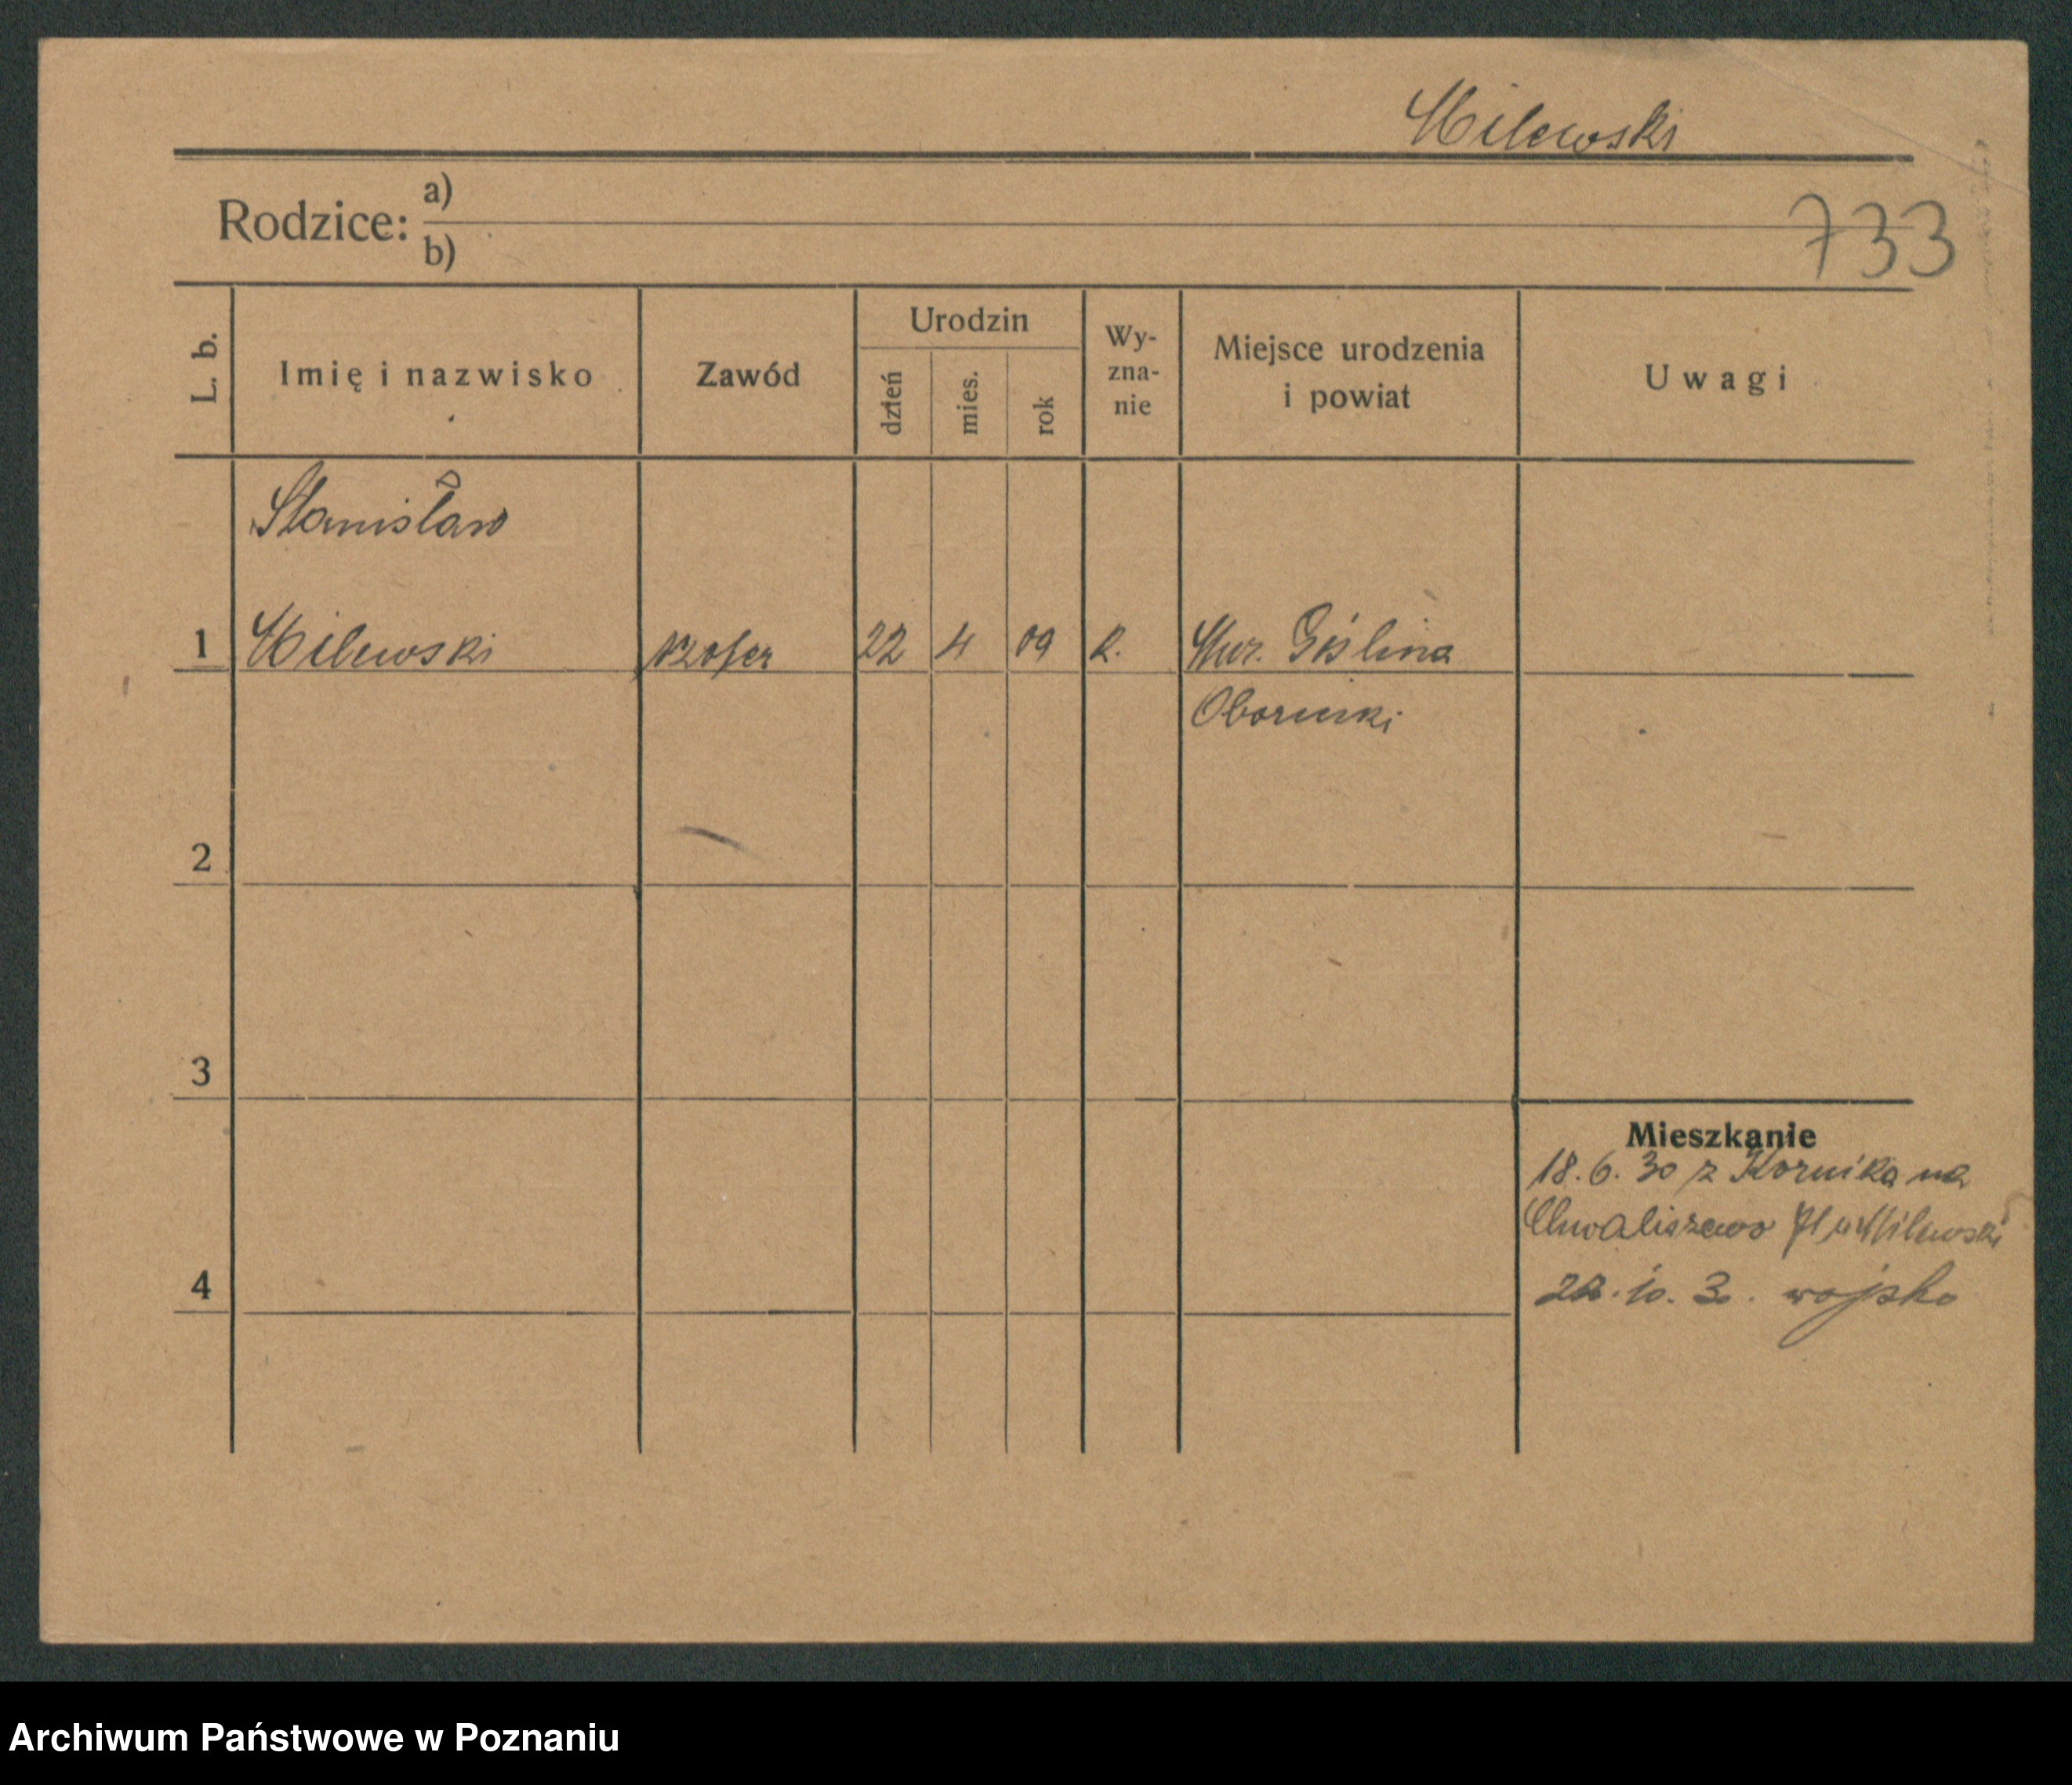 Milewski
Rodzice: a)
b)
733
L. b.
Imię i nazwisko
Zawód
Urodzin
dzień
mies.
rok
Wy-
zna-
nie
Miejsce urodzenia
i powiat
Uwagi
Stanisław
1 Milewski szofer 22 4 09 k. Mur. Goślina
Oborniki
2
3
4
Mieszkanie
18.6.30 z Kornika na
Chwaliszewo 71 u Milewski
10. 30. wojsko
Archiwum Państwowe w Poznaniu